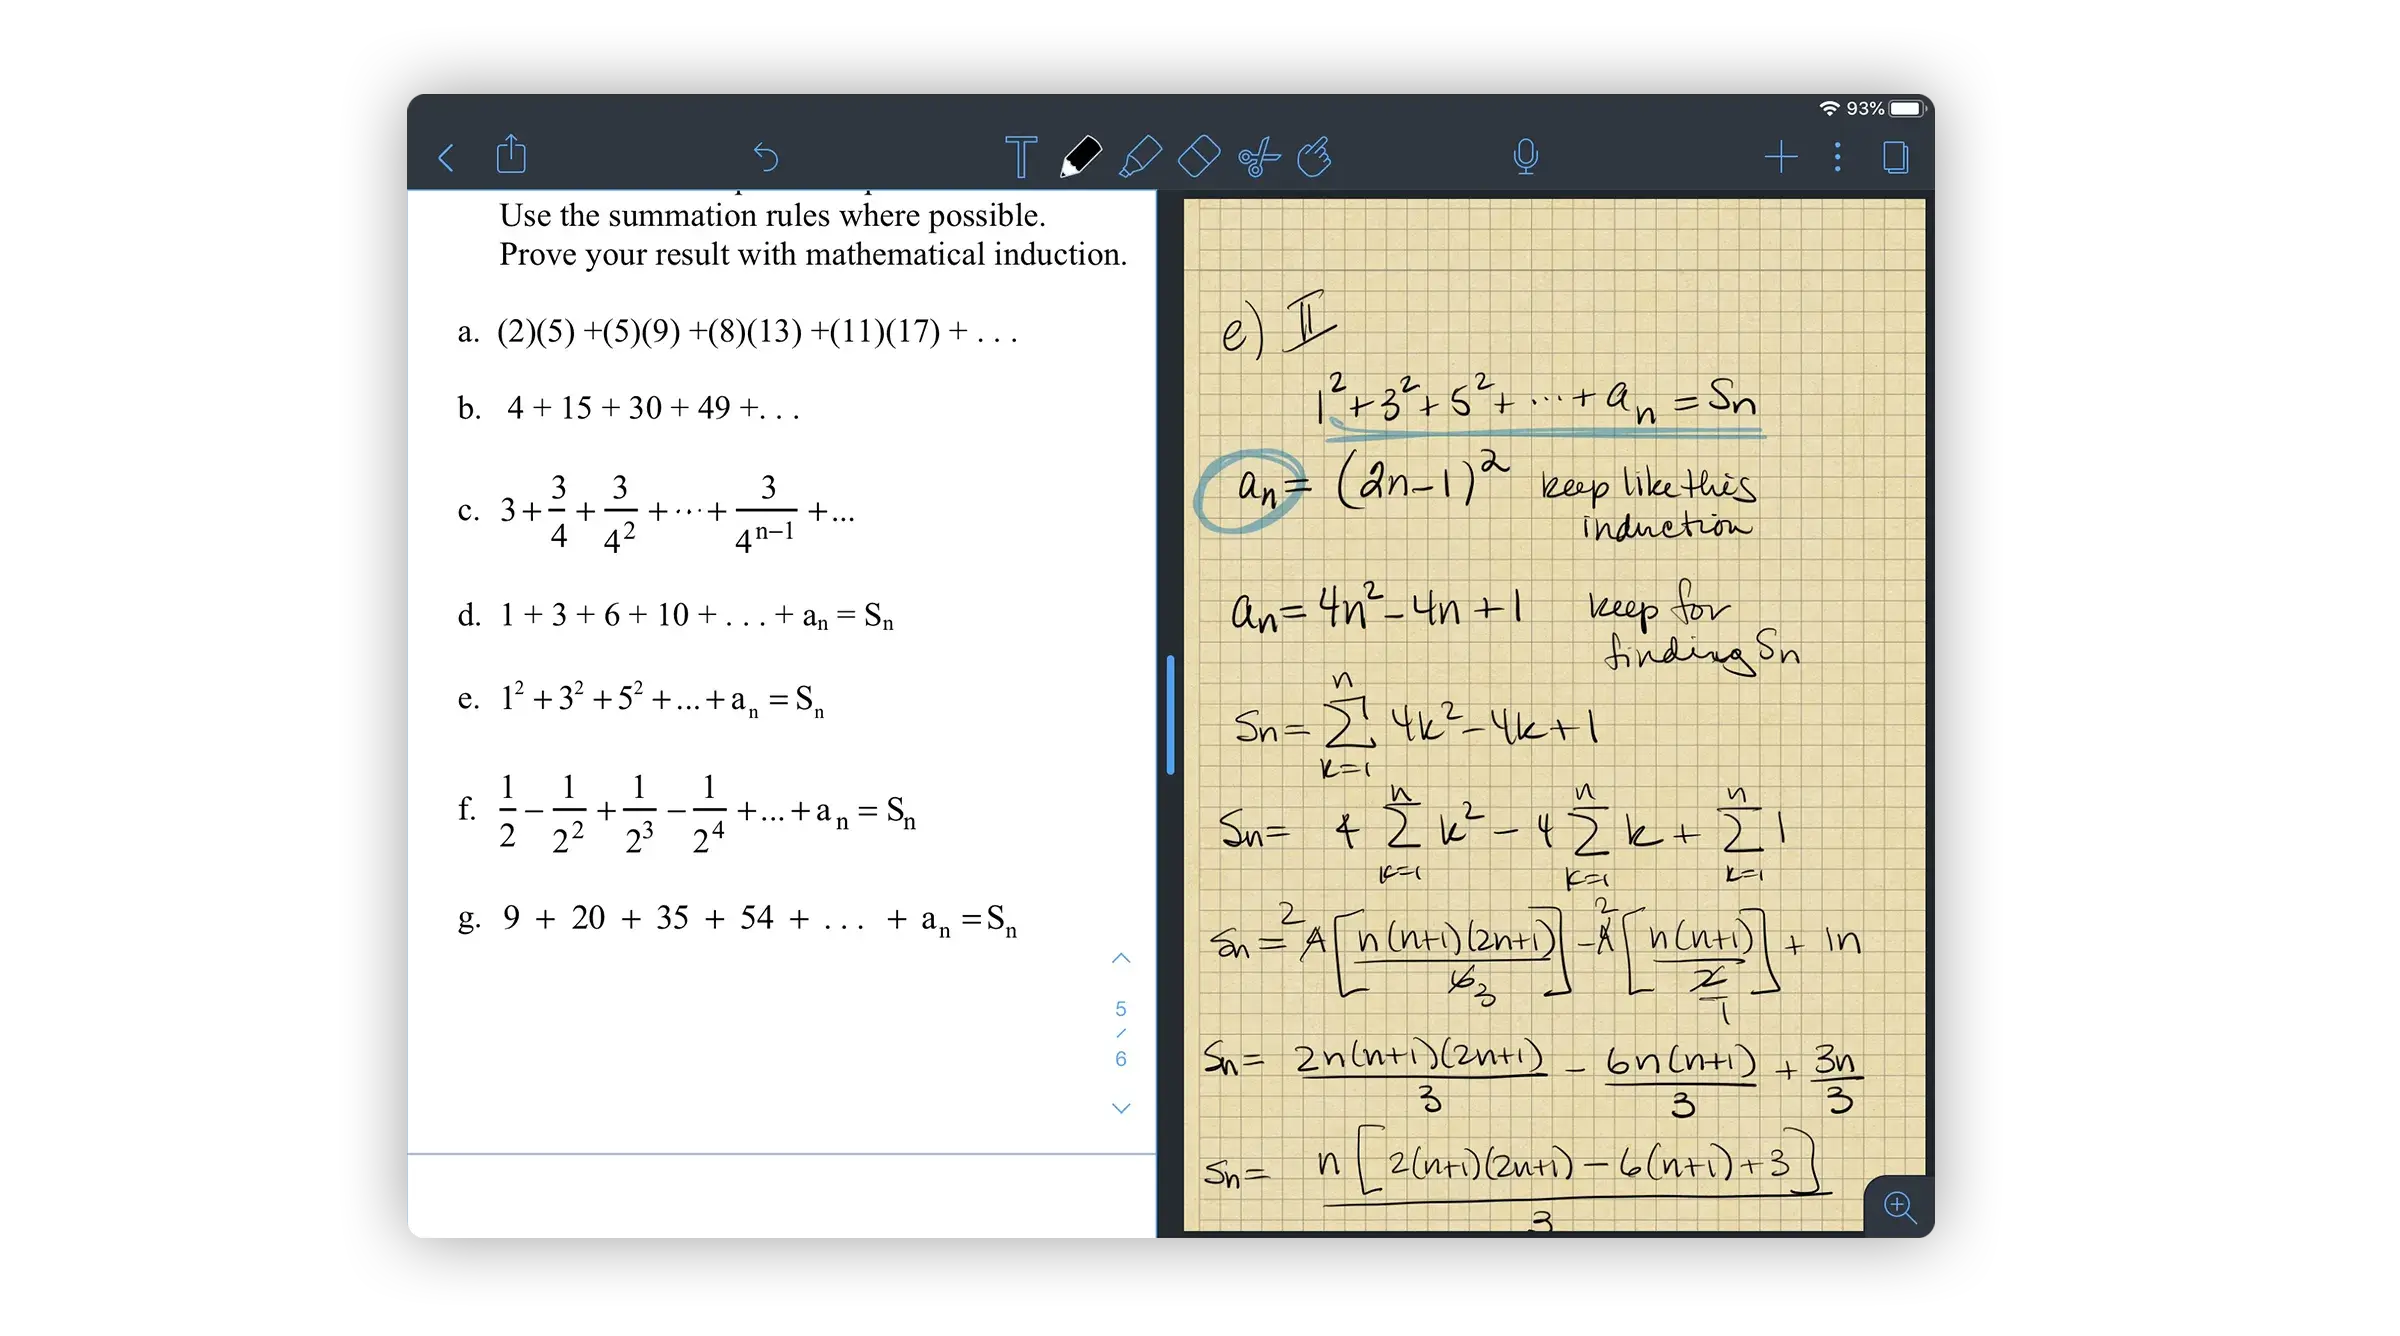 93%
Use the summation rules where possible.
Prove your result with mathematical induction.
a. (2)(5) +(5)(9) +(8)(13) +(11)(17) + . . .
b. 4 + 15 + 30 + 49 +. . .
c. 3 + 3/4 + 3/4² + ⋯ + 3/4ⁿ⁻¹ + ...
d. 1 + 3 + 6 + 10 + . . . + aₙ = Sₙ
e. 1² + 3² + 5² + ... + aₙ = Sₙ
f. 1/2 − 1/2² + 1/2³ − 1/2⁴ + ... + aₙ = Sₙ
g. 9 + 20 + 35 + 54 + . . . + aₙ = Sₙ
5
/
6
e) II
1² + 3² + 5² + ⋯ + aₙ = Sₙ
aₙ = (2n−1)² keep like this
induction
aₙ = 4n² − 4n + 1 keep for
finding Sₙ
Sₙ = n Σ k=1 4k² − 4k + 1
Sₙ = 4 n Σ k=1 k² − 4 n Σ k=1 k + n Σ k=1 1
Sₙ = 2 4 [n(n+1)(2n+1) / 6 3] − 2 4 [n(n+1) / 2 1] + 1n
Sₙ = 2n(n+1)(2n+1)/3 − 6n(n+1)/3 + 3n/3
Sₙ = n[2(n+1)(2n+1) − 6(n+1) + 3] / 3